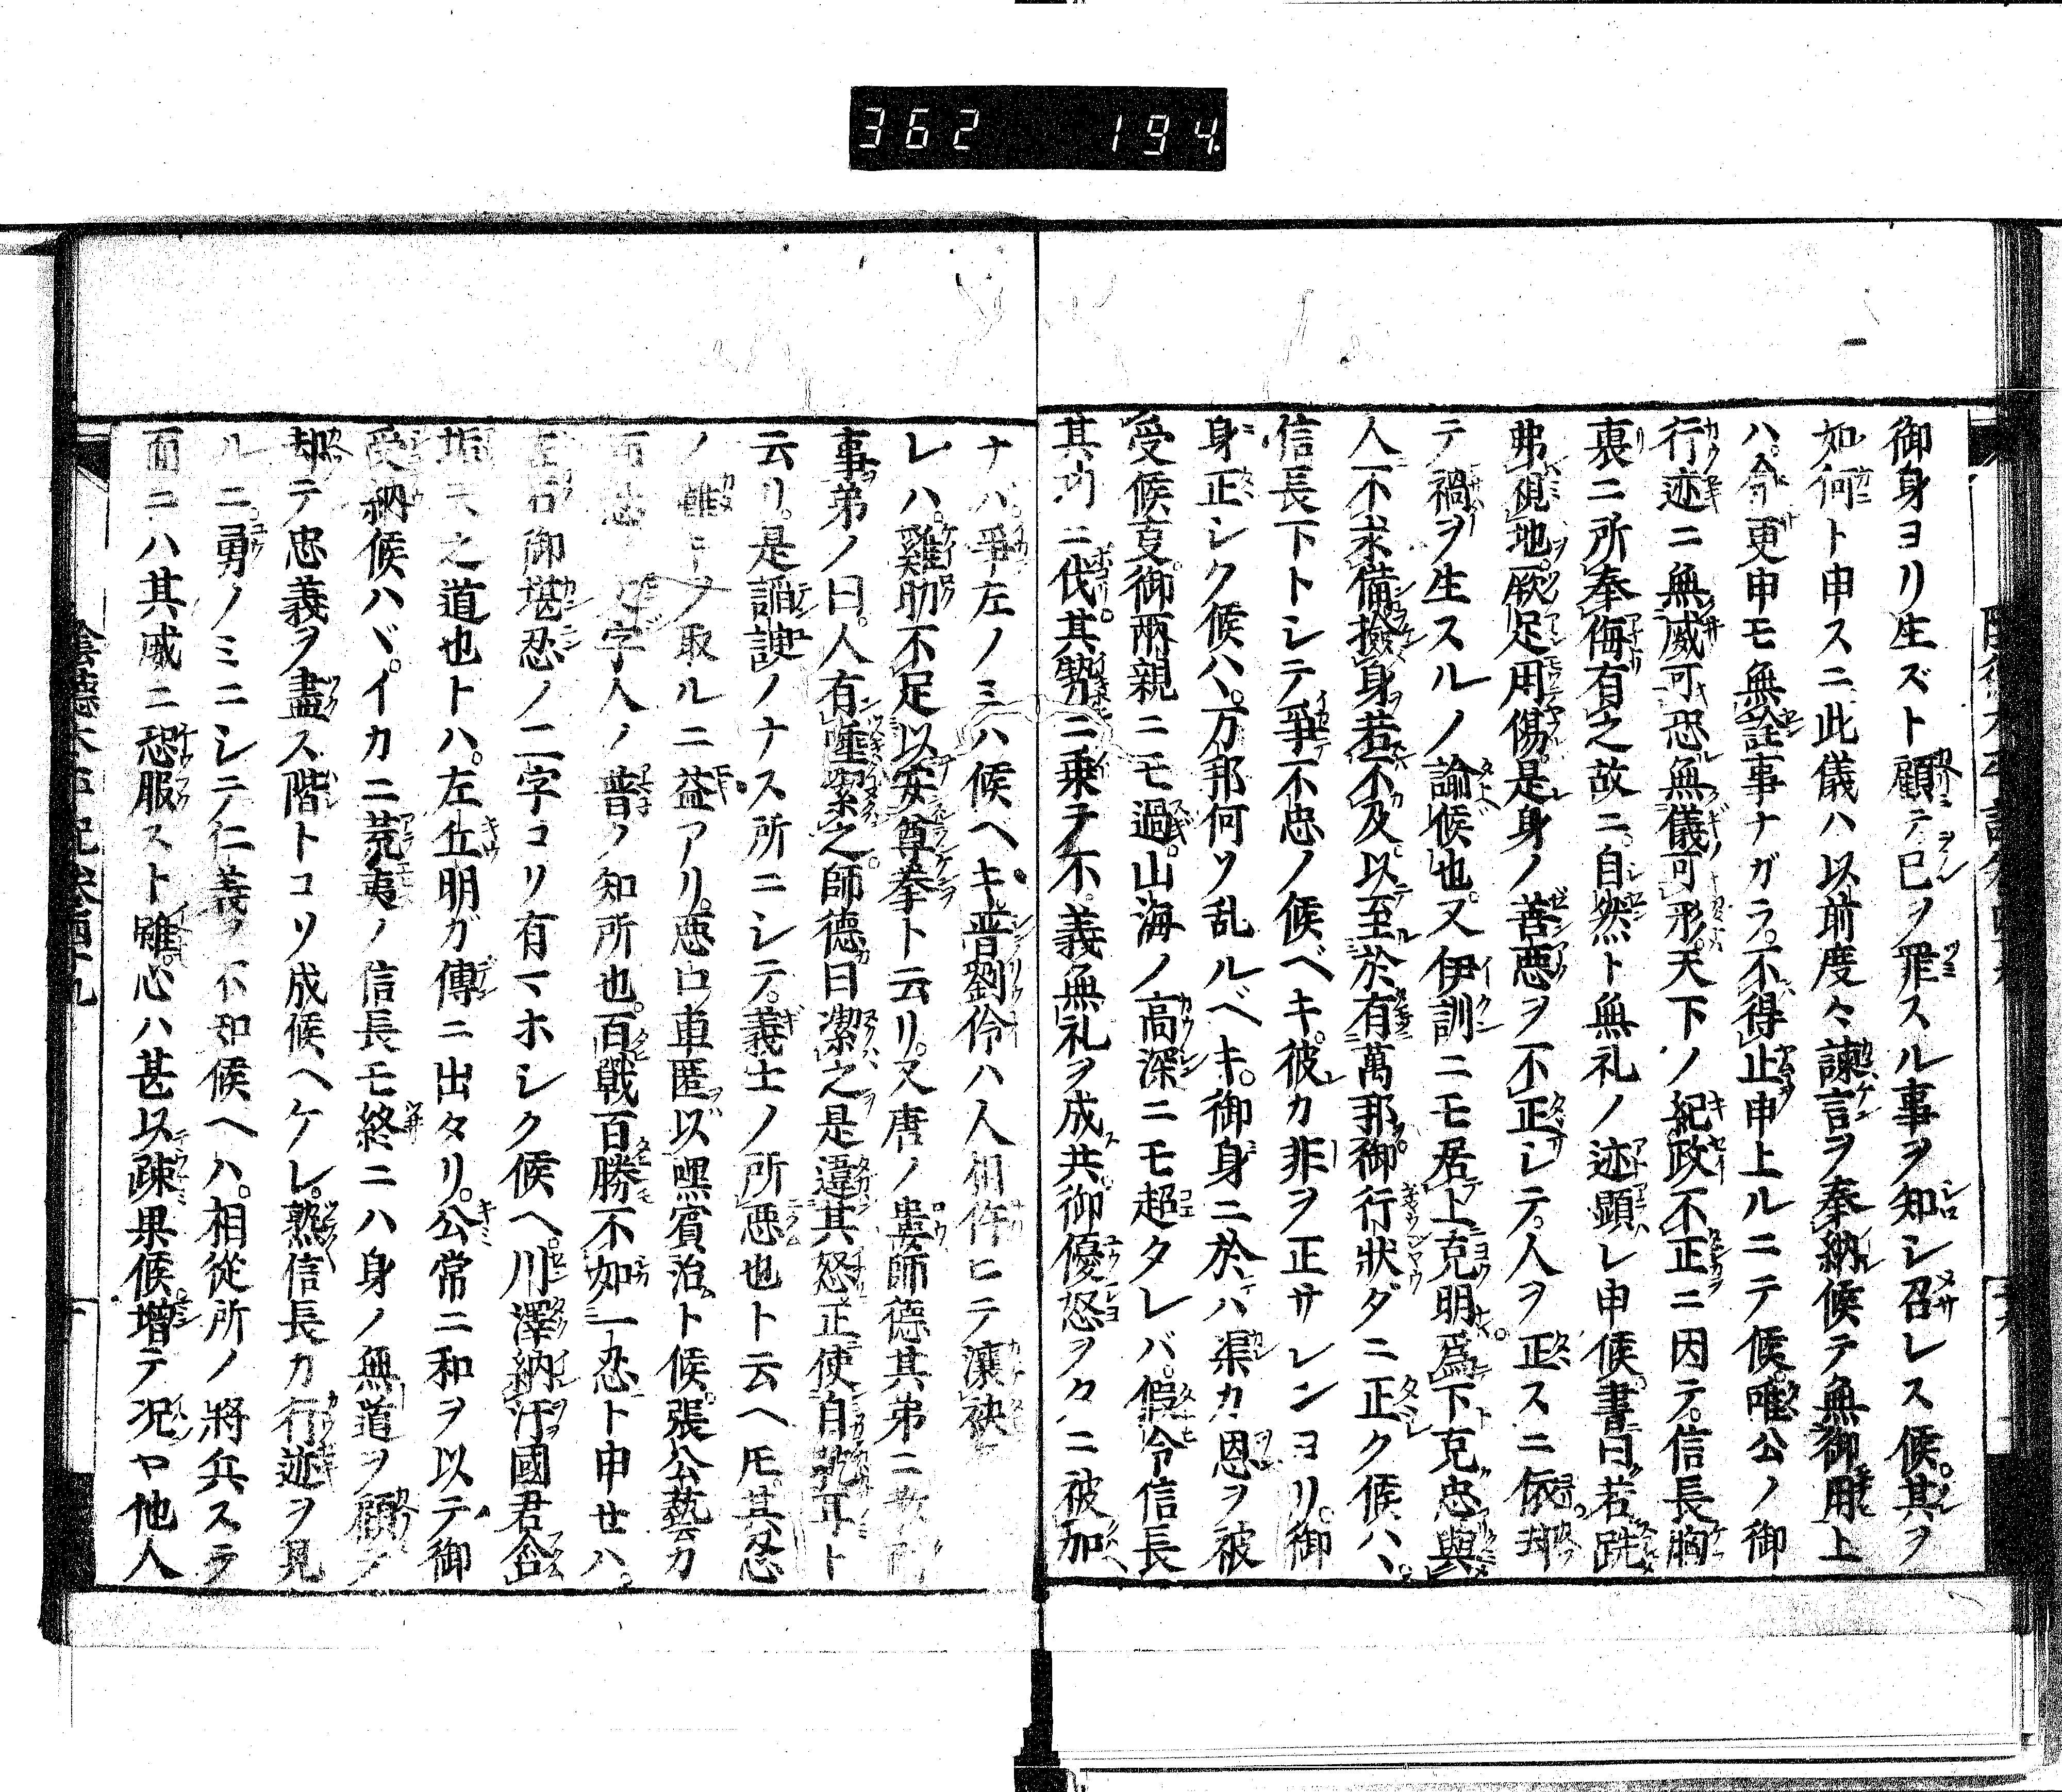 362 194
御身ヨリ生ズト顧テ己ヲ罪スル事ヲ知シ召レス候其ヲ
如何ト申スニ此儀ハ以前度々諫言ヲ奉納候テ無御用上
ハ今更申モ無詮事ナガラ不得止申上ルニテ候唯公ノ御
行迹ニ無威可恐無儀可形天下ノ紀政不正ニ因テ信長胸
裏ニ所奉侮有之故ニ自然ト無礼ノ迹顕レ申候書曰若跣
弗視地厥足用傷是身ノ善悪ヲ不正レテ人ヲ正スニ依却
テ禍ヲ生スルノ諭候也又伊訓ニモ居上克明爲下克忠與
人不求備撿身若不及以至於有萬邦御行状ダニ正ク候ハ
信長下トシテ爭不忠ノ候ベキ彼カ非ヲ正サレンヨリ御
身正シク候ハ万邦何ソ乱ルベキ御身ニ於ハ渠カ恩ヲ被
受候亊御兩親ニモ過山海ノ高深ニモ超タレバ假令信長
其功ニ伐其勢ニ乗テ不義無礼ヲ成共御優恕ヲタニ被加
ナバ爭左ノミハ候ヘキ晋劉伶ハ人相忤ヒテ瀼袂
レハ雞肋不足以安尊拳ト云リ又唐ノ婁師德其弟ニ
事弟ノ曰人有唾潔之師德曰潔之是違其怒正使自乾耳ト
云リ是諂諛ノナス所ニシテ義士ノ所悪也ト云ヘ㒵其忍
ノ難ヲ取ルニ益アリ悪口車匿以嘿賓治ト候張公藝カ
字人ノ普ノ知所也百戰百勝不如一忍ト申せハ
御堪忍ノ二字コソ有マホシク候ヘ川澤納汙國君含
垢天之道也トハ左丘明ガ傳ニ出タリ公常ニ和ヲ以テ御
受納候ハヾイカニ荒夷ノ信長モ終ニハ身ノ無道ヲ顧ノ
却テ忠義ヲ盡ス階トコソ成候ヘケレ熟信長カ行迹ヲ見
ルニ勇ノミニシテ仁義ヲ不知候ヘハ相從所ノ將兵スラ
面ニハ其威ニ恐服スト雖心ハ甚以疎果候増テ况ヤ他人